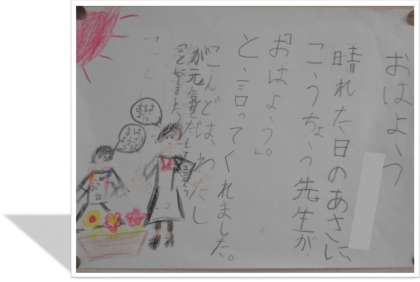 おはよう
晴れた日のあさに、
こうちょう先生が
「おはよう。」
と、言ってくれました。
こんどは、わたし
が元気な